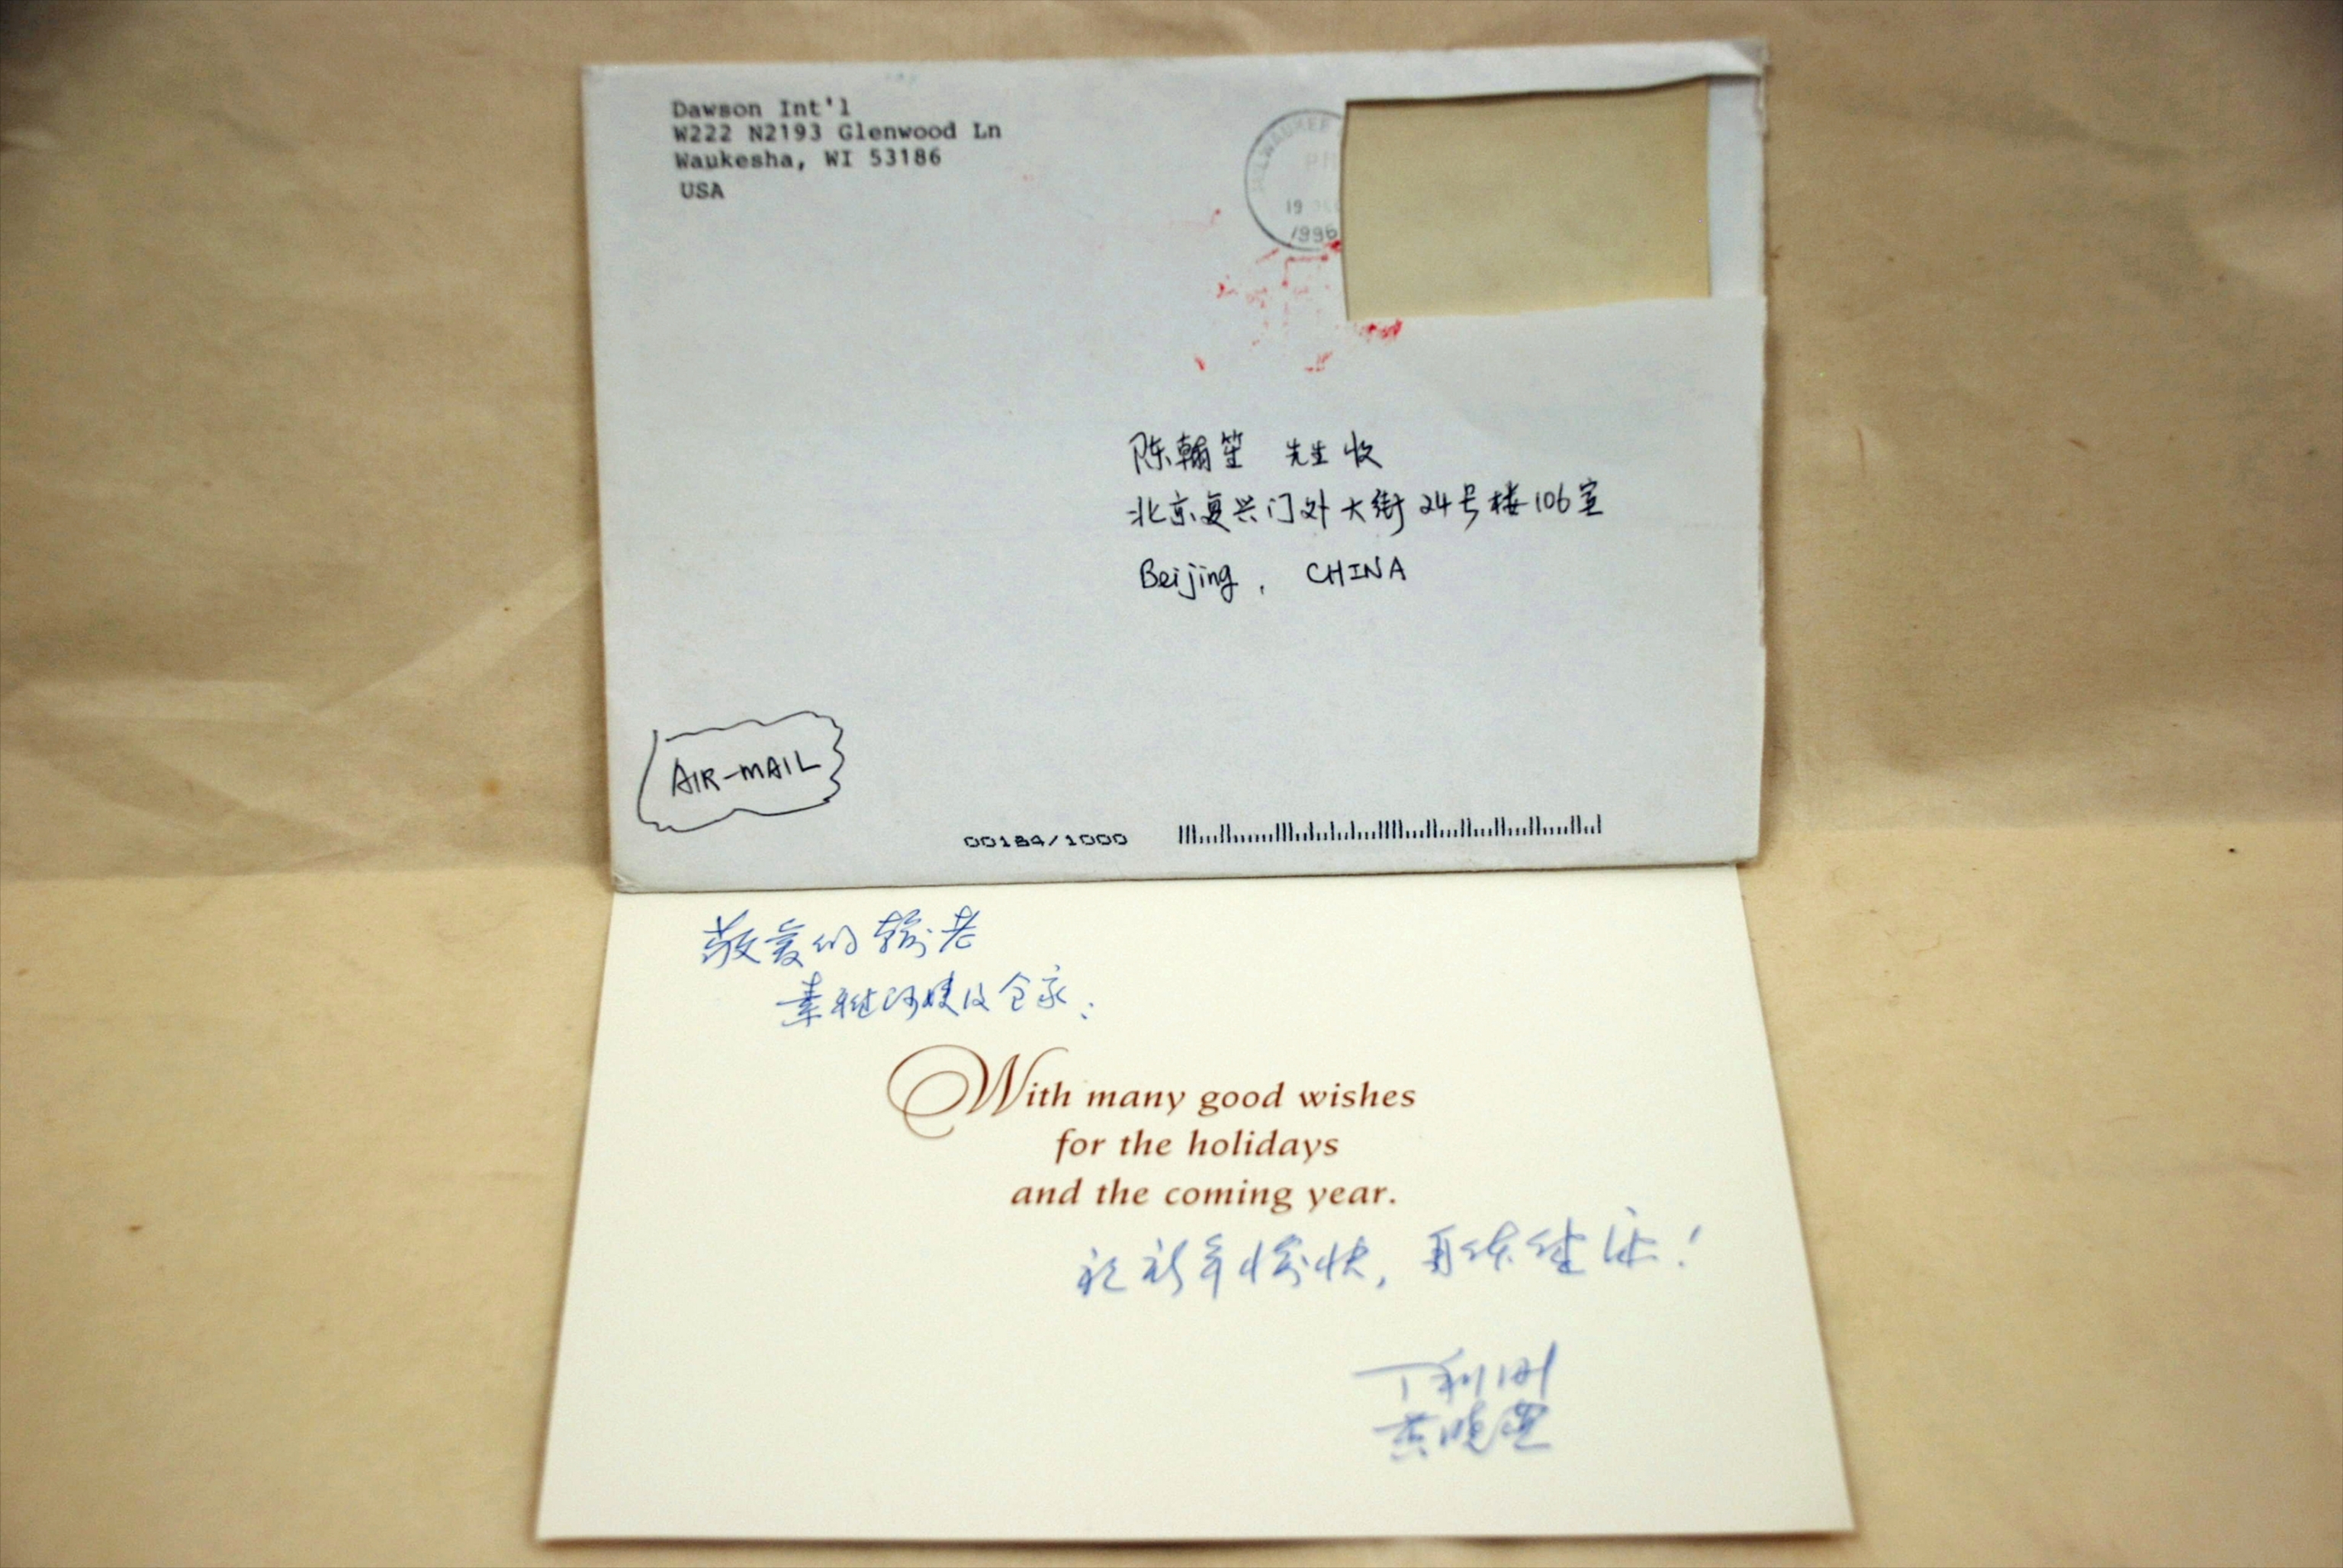 Dawson Int'l
W222 N2193 Glenwood Ln
Waukesha, WI 53186
USA
MILWAUKEE
PM
19 DEC
1996
陈翰笙 先生 收
北京复兴门外大街24号楼106室
Beijing, CHINA
AIR-MAIL
00184/1000
敬爱的翰老
素雅阿姨及全家:
With many good wishes
for the holidays
and the coming year.
祝新年愉快,身体健康!
丁利刚
黄晓